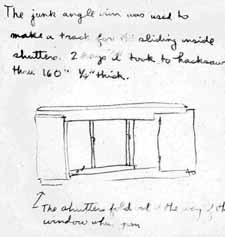 The junk angle iron was used to
make a track for the sliding inside
shutters. 2 days it took to hacksaw
thru 160" ¼" thick.
The shutters fold out of the way of the
window when open